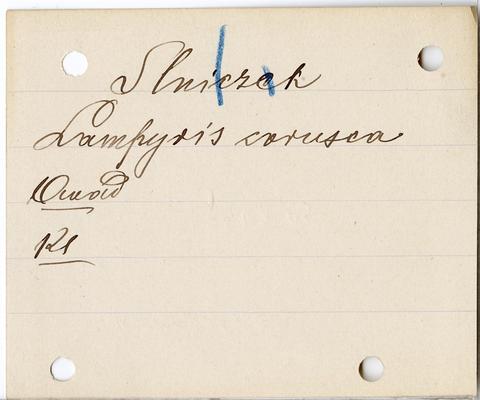 Słniczek
Lampyris corusca
Owad
Kl